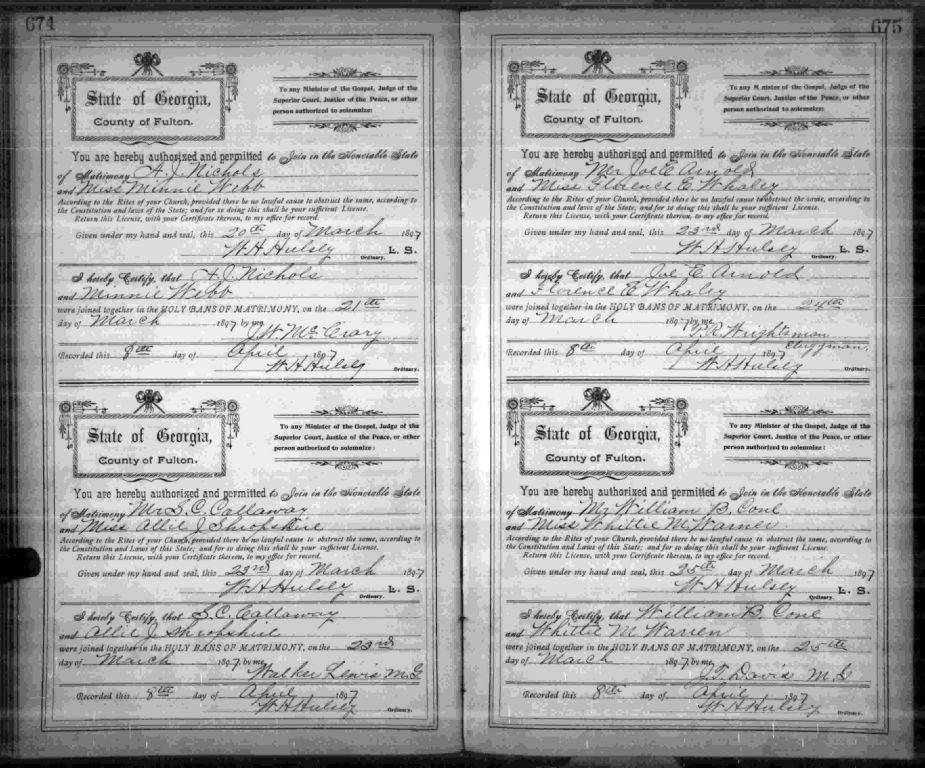 674
State of Georgia,
County of Fulton.
To any Minister of the Gospel, Judge of the
Superior Court, Justice of the Peace, or other
person authorized to solemnize:
You are hereby authorized and permitted to Join in the Honorable State
of Matrimony A. J. Nichols
and Miss Minnie Webb
According to the Rites of your Church, provided there be no lawful cause to obstruct the same, according to
the Constitution and laws of the State; and for so doing this shall be your sufficient License.
Return this License, with your Certificate thereon, to my office for record.
Given under my hand and seal, this 20th day of March 1897
W. H. Hulsey L. S.
Ordinary.
I hereby Certify, that A. J. Nichols
and Minnie Webb
were joined together in the HOLY BANS OF MATRIMONY, on the 21st
day of March 1897 by me,
J. W. McCrary
Recorded this 8th day of April 1897
W. H. Hulsey
Ordinary.
State of Georgia,
County of Fulton.
To any Minister of the Gospel, Judge of the
Superior Court, Justice of the Peace, or other
person authorized to solemnize:
You are hereby authorized and permitted to Join in the Honorable State
of Matrimony Mr S. C. Callaway
and Miss Allie J Shropshire
According to the Rites of your Church, provided there be no lawful cause to obstruct the same, according to
the Constitution and Laws of this State; and for so doing this shall be your sufficient License.
Return this License, with your Certificate thereon, to my office for record.
Given under my hand and seal, this 23rd day of March 1897
W. H. Hulsey L. S.
Ordinary.
I hereby Certify, that S. C. Callaway
and Allie J Shropshire
were joined together in the HOLY BANS OF MATRIMONY, on the 23rd
day of March 1897 by me,
Walker Lewis M. G.
Recorded this 8th day of April 1897
W. H. Hulsey
Ordinary.
675
State of Georgia,
County of Fulton.
To any Minister of the Gospel, Judge of the
Superior Court, Justice of the Peace, or other
person authorized to solemnize:
You are hereby authorized and permitted to Join in the Honorable State
of Matrimony Mr Joe E Arnold
and Miss Florence E. Whaley
According to the Rites of your Church, provided there be no lawful cause to obstruct the same, according to
the Constitution and laws of this State; and for so doing this shall be your sufficient License.
Return this License, with your Certificate thereon, to my office for record.
Given under my hand and seal, this 23rd day of March 1897
W. H. Hulsey L. S.
Ordinary.
I hereby Certify, that Joe E Arnold
and Florence E Whaley
were joined together in the HOLY BANS OF MATRIMONY, on the 24th
day of March 1897 by me,
T. R. Wrightsman
Clergyman.
Recorded this 8th day of April 1897
W. H. Hulsey
Ordinary.
State of Georgia,
County of Fulton.
To any Minister of the Gospel, Judge of the
Superior Court, Justice of the Peace, or other
person authorized to solemnize:
You are hereby authorized and permitted to Join in the Honorable State
of Matrimony Mr William B. Cone
and Miss Whittie M. Warner
According to the Rites of your Church, provided there be no lawful cause to obstruct the same, according to
the Constitution and laws of this State; and for so doing this shall be your sufficient License.
Return this License, with your Certificate thereon, to my office for record.
Given under my hand and seal, this 25th day of March 1897
W. H. Hulsey L. S.
Ordinary.
I hereby Certify, that William B. Cone
and Whittie M Warren
were joined together in the HOLY BANS OF MATRIMONY, on the 25th
day of March 1897 by me,
J. T. Davis M. G
Recorded this 8th day of April 1897
W. H. Hulsey
Ordinary.